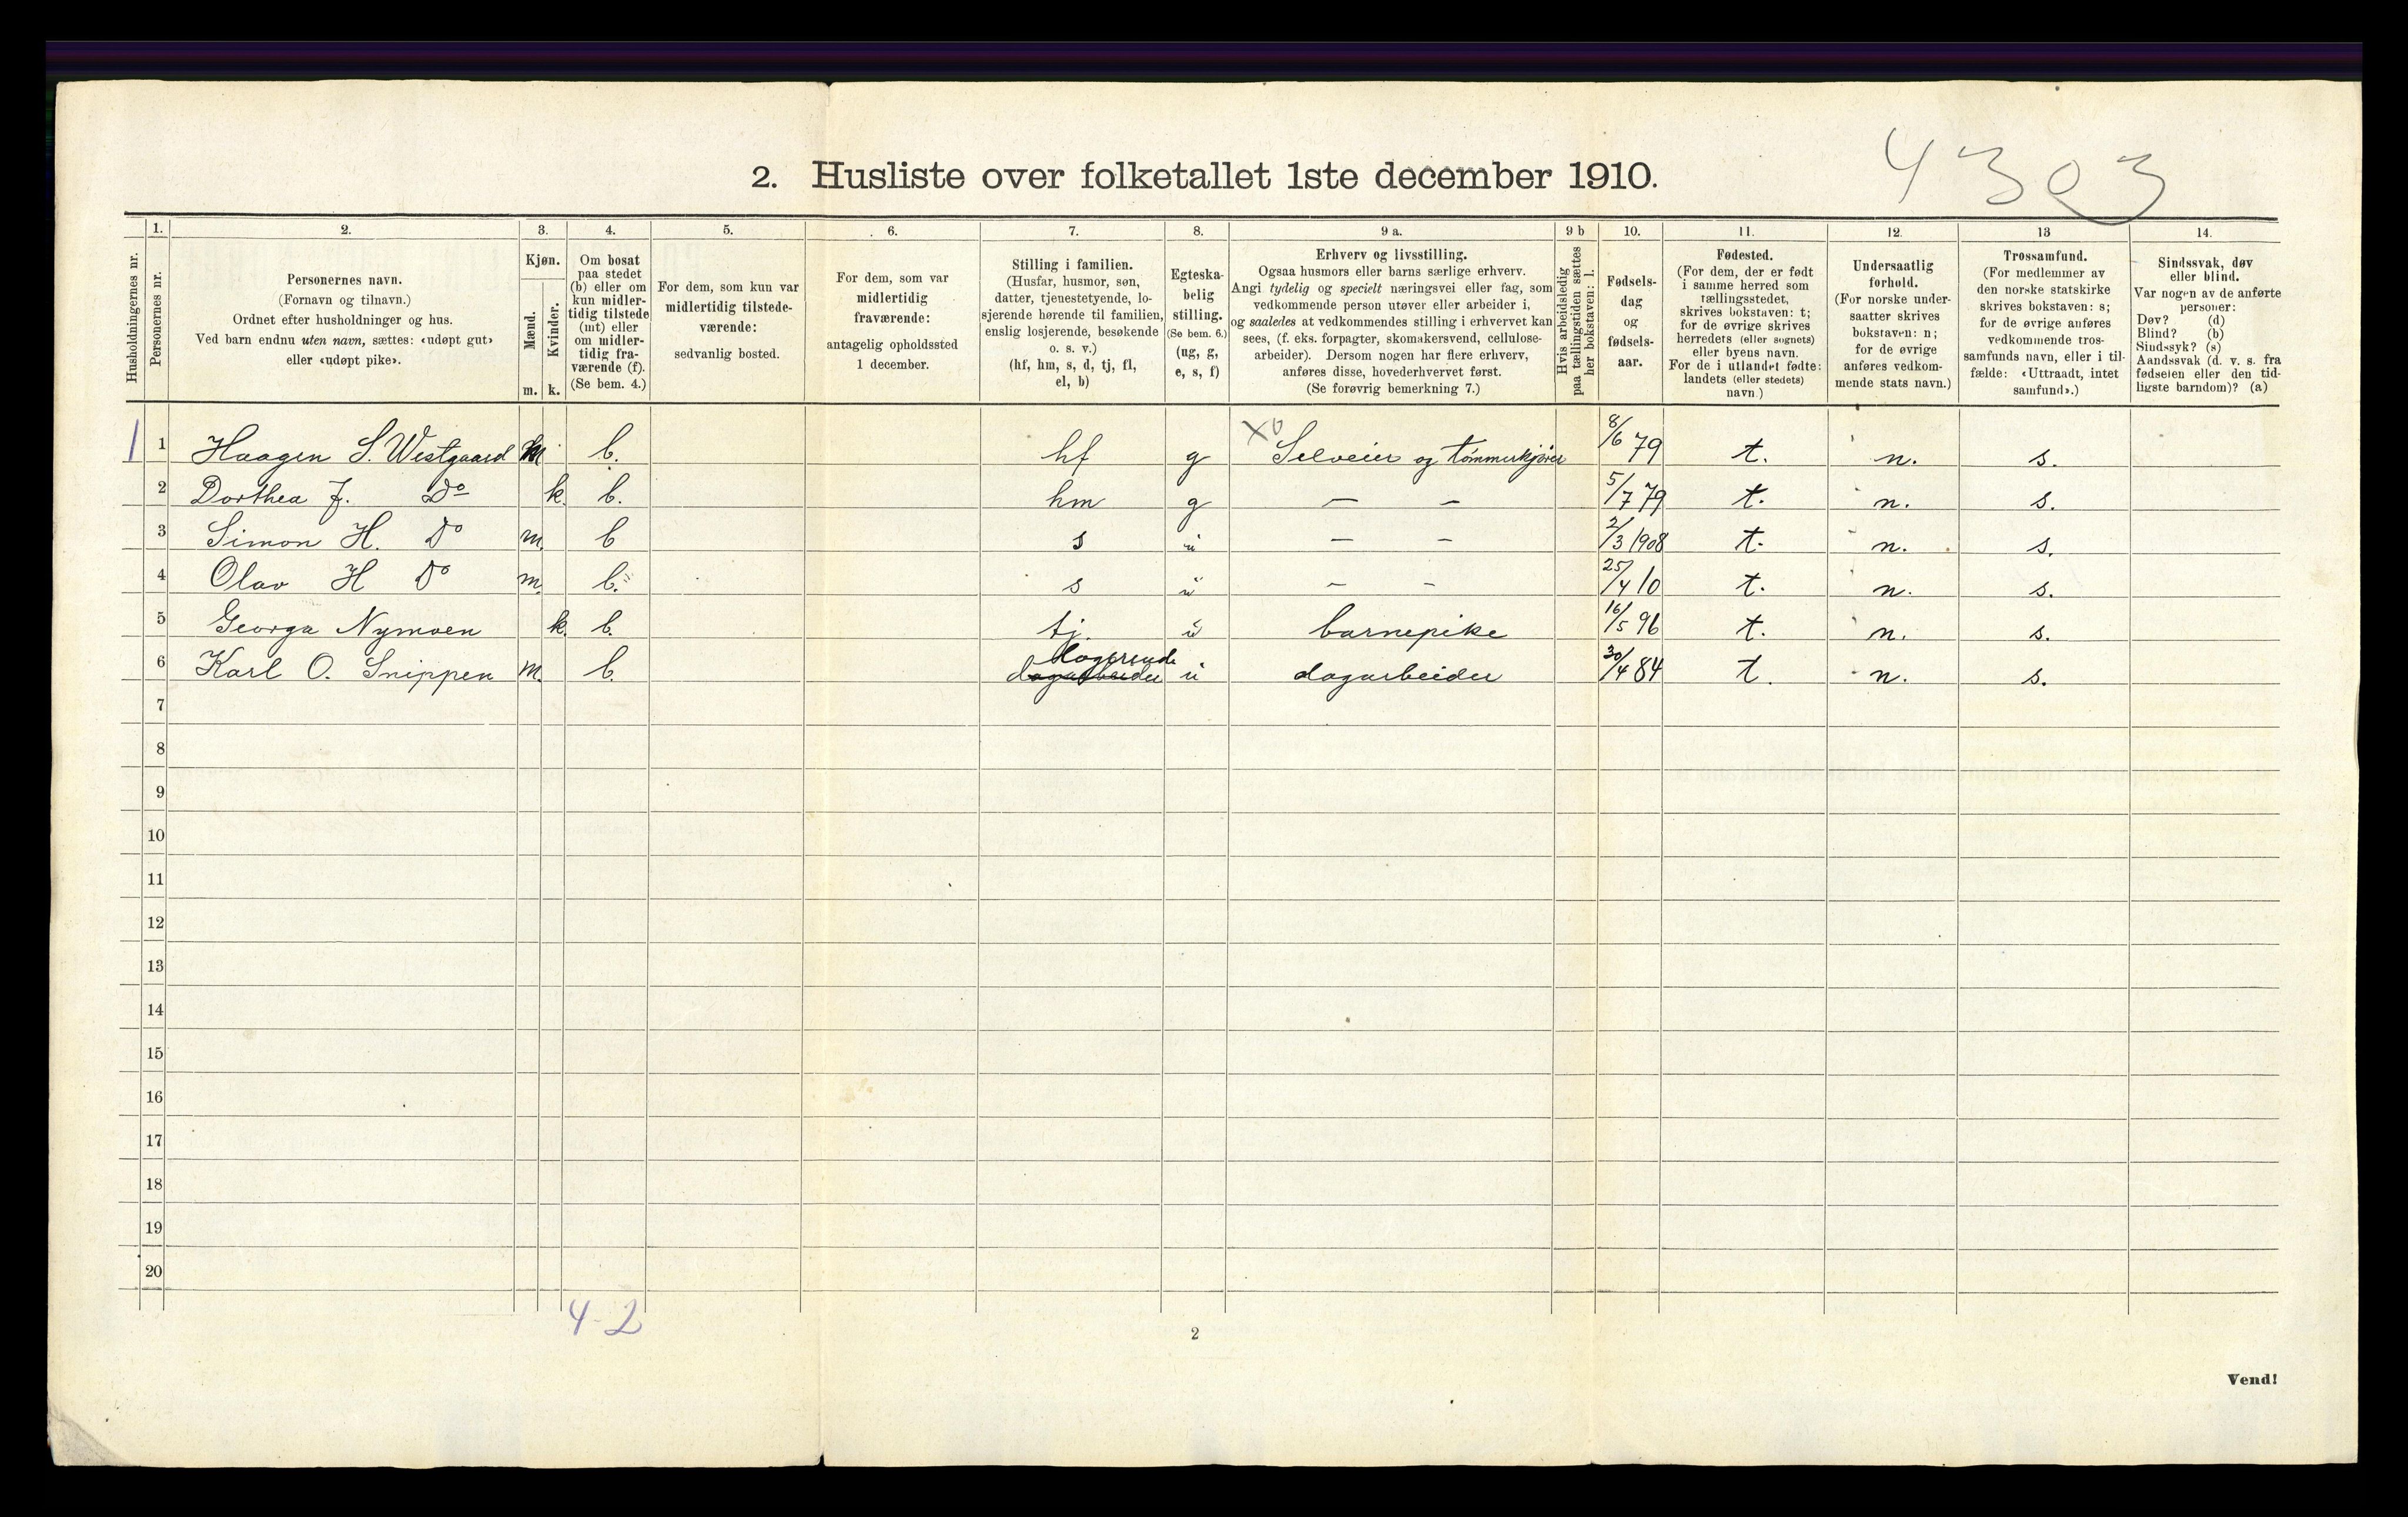 4303
2. Husliste over folketallet 1ste december 1910.
Husholdningernes nr.
1.
Personernes nr.
2.
Personernes navn.
(Fornavn og tilnavn.)
Ordnet efter husholdninger og hus.
Ved barn endnu uten navn, sættes: «udøpt gut»
eller «udøpt pike».
3.
Kjøn.
Mænd.
Kvinder.
m. k.
4.
Om bosat
paa stedet
(b) eller om
kun midler-
tidig tilstede
(mt) eller
om midler-
tidig fra-
værende (f).
(Se bem. 4.)
5.
For dem, som kun var
midlertidig tilstede-
værende:
sedvanlig bosted.
6.
For dem, som var
midlertidig
fraværende:
antagelig opholdssted
1 december.
7.
Stilling i familien.
(Husfar, husmor, søn,
datter, tjenestetyende, lo-
sjerende hørende til familien,
enslig losjerende, besøkende
o. s. v.)
(hf, hm, s, d, tj, fl,
el, b)
8.
Egteska-
belig
stilling.
(Se bem. 6.)
(ug, g,
e, s, f)
9 a.
Erhverv og livsstilling.
Ogsaa husmors eller barns særlige erhverv.
Angi tydelig og specielt næringsvei eller fag, som
vedkommende person utøver eller arbeider i,
og saaledes at vedkommendes stilling i erhvervet kan
sees, (f. eks. forpagter, skomakersvend, cellulose-
arbeider). Dersom nogen har flere erhverv,
anføres disse, hovederhvervet først.
(Se forøvrig bemerkning 7.)
9 b
Hvis arbeidsledig
paa tællingstiden sættes
her bokstaven: l.
10.
Fødsels-
dag
og
fødsels-
aar.
11.
Fødested.
(For dem, der er født
i samme herred som
tællingsstedet,
skrives bokstaven: t;
for de øvrige skrives
herredets (eller sognets)
eller byens navn.
For de i utlandet fødte:
landets (eller stedets)
navn.)
12.
Undersaatlig
forhold.
(For norske under-
saatter skrives
bokstaven: n;
for de øvrige
anføres vedkom-
mende stats navn.)
13
Trossamfund.
(For medlemmer av
den norske statskirke
skrives bokstaven: s;
for de øvrige anføres
vedkommende tros-
samfunds navn, eller i til-
fælde: «Uttraadt, intet
samfund».)
14.
Sindssvak, døv
eller blind.
Var nogen av de anførte
personer:
Døv? (d)
Blind? (b)
Sindssyk? (s)
Aandssvak (d. v. s. fra
fødselen eller den tid-
ligste barndom)? (a)
1 1 Haagen S. Westgaard m b. hf g Selveier og tømmerkjører 8/6 79 t. n. s.
2 Dorthea J. Do k. b. hm g — — 5/7 79 t. n. s.
3 Simon H. Do m. b s ü — — 2/3 1908 t. n. s.
4 Olav H Do m. b. s ü — — 25/4 10 t. n. s.
5 Georga Nymoen k. b. tj. ü barnepike 16/5 96 t. n. s.
6 Karl O. Snippen m. b. dagarbeider logerende ü dagarbeider 30/4 84 t. n. s.
7
8
9
10
11
12
13
14
15
16
17
18
19
20
4-2
2
Vend!